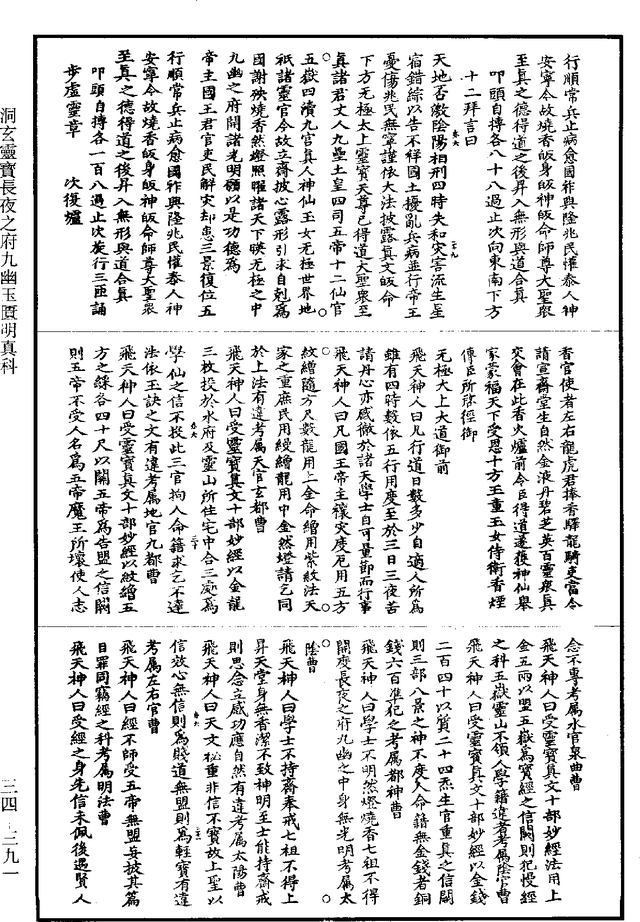 行順常兵止病愈國祚興隆兆民懽泰人神
安寧今故燒香皈身皈神皈命師尊大聖衆
至真之德得道之後昇入無形與道合真
叩頭自搏各八十八過止次向東南下方
十二拜言曰
天地否激陰陽相刑四時失和灾害流生星
宿錯綜以告不祥國土擾亂兵病並行帝王
憂傷兆民無寧謹依大法披露真文皈命
下方無極太上靈寶天尊已得道大聖衆至
真諸君丈人九壘土皇四司五帝十二仙官
五嶽四瀆九宮真人神仙玉女無極世界地
祇諸靈官今故立齋披心露形引求自剋爲
國謝殃燒香然燈照曜諸天下暎無極之中
九幽之府開諸光明願以是功德爲
帝主國王君官吏民解灾却患三景復位五
行順常兵止病愈國祚興隆兆民懽泰人神
安寧今故燒香皈身皈神皈命師尊大聖衆
至真之德得道之後昇入無形與道合真
叩頭自搏各一百八過止次旋行三匝誦
步虛靈章　次復爐
香官使者左右龍虎君捧香驛龍騎吏當令
請宣齋堂生自然金液丹碧芝英百靈衆真
交會在此香火爐前令臣得道遂獲神仙舉
家蒙福天下受恩十方玉童玉女侍衛香煙
傳臣所啓徑御
無極大上大道御前
飛天神人曰凡行道日數多少自適人所爲
雖有四時數依五行用度至於三日三夜苦
請丹心亦感徹於諸天學士自可量節而行事
飛天神人曰凡國王帝主禳灾度厄用五方
紋繒隨方尺數龍用上金命繒用紫紋法天
家之重庶民用縵繒龍用中金然燈請乞同
於上法有違考屬天官玄都曹
飛天神人曰受靈寶真文十部妙經以金龍
三枚投於水府及靈山所住宅中合三處爲
學仙之信不投此三官拘人命籍求乞不達
法依玉訣之文有違考屬地官九都曹
飛天神人曰受靈寶真文十部妙經以紋繒五
方之綵各四十尺以關五帝爲告盟之信闕
則五帝不受人名爲五帝魔王所壞使人志
念不專考屬水官泉曲曹
飛天神人曰受靈寶真文十部妙經法用上
金五兩以盟五嶽爲寶經之信闕則犯慢經
之科五嶽靈山不領人學籍違者考屬陰官曹
飛天神人曰受靈寶真文十部妙經以金錢
二百四十以質二十四炁生官重真之信闕
則三部八景之神不度人命籍無金錢者銅
錢六百準犯之考屬都神曹
飛天神人曰學士不明然燈燒香七祖不得
開度長夜之府九幽之中身無光明考屬太
陰曹
飛天神人曰學士不持齋奉戒七祖不得上
昇天堂身無香潔不致神明至士能持齋戒
則思念立感功應自然有違考屬太陽曹
飛天神人曰天文祕重非信不寶故上聖以
信效心無信則爲賤道無盟則爲輕寶有違
考屬左右官曹
飛天神人曰經不師受五帝無盟妄披其篇
目罪同竊經之科考屬明法曹
飛天神人曰受經之身先信未佩後遇賢人
洞玄靈寶長夜之府九幽玉匱明真科
三四－三九一